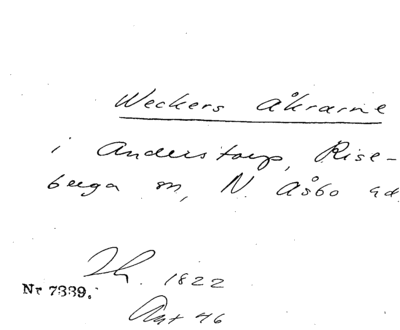 Weckers åkrarne
i Anderstorp, Rise-
berga sn, N. Åsbo hd.
Th. 1822
Nr 7339.
Ant 46